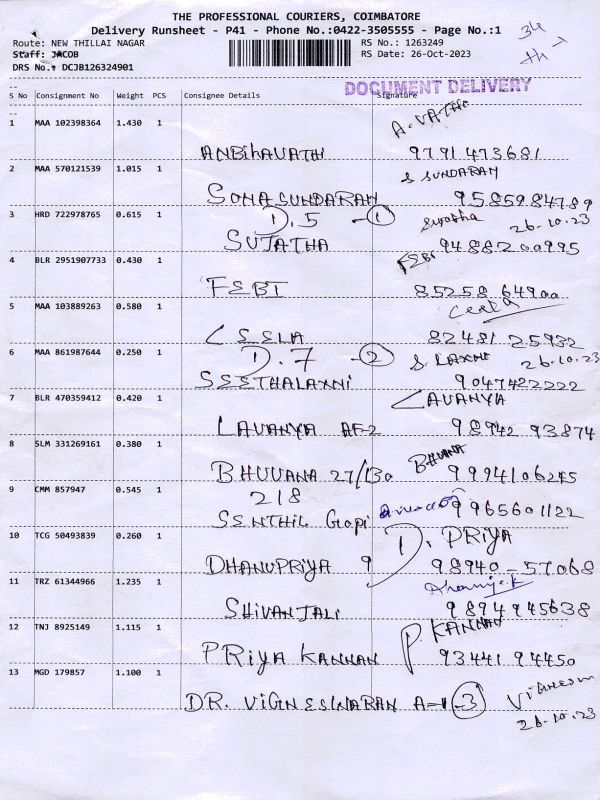 THE PROFESSIONAL COURIERS, COIMBATORE
Delivery Runsheet - P41 - Phone No.:0422-3505555 - Page No.:1
Route: NEW THILLAI NAGAR RS No.: 1263249
Staff: JACOB RS Date: 26-Oct-2023
DRS No.: DCJB126324901
34
DOCUMENT DELIVERY
S No Consignment No Weight PCS Consignee Details Signature
1 MAA 102398364 1.430 1
ANBIHAVATHI 9791 473681
2 MAA 570121539 1.015 1 S SUNDARAM
SOMASUNDARAM 9585984789
3 HRD 722978765 0.615 1 D.5 - 1 Sujatha 26-10-23
SUJATHA 94882 00995
4 BLR 2951907733 0.430 1 FEBI
FEBI 85258 64900
5 MAA 103889263 0.580 1
LEELA 82481 25932
6 MAA 861987644 0.250 1 D.7 - 2 S. LAXMI 26.10.23
SEETHALAXMI 9047422222
7 BLR 470359412 0.420 1 LAVANYA
LAVANYA AF-2 98942 93874
8 SLM 331269161 0.380 1 BHUVANA
BHUVANA 27/130 9994106245
9 CMM 857947 0.545 1 218
SENTHIL Gopi 9965601122
10 TCG 50493839 0.260 1 D. PRIYA
DHANUPRIYA 9 98940-57068
11 TRZ 61344966 1.235 1
SHIVANJALI 9894945638
12 TNJ 8925149 1.115 1 P KANNAN
PRIYA KANNAN 93441 94450
13 MGD 179857 1.100 1
DR. VIGNESWARAN A-1-3 26.10.23